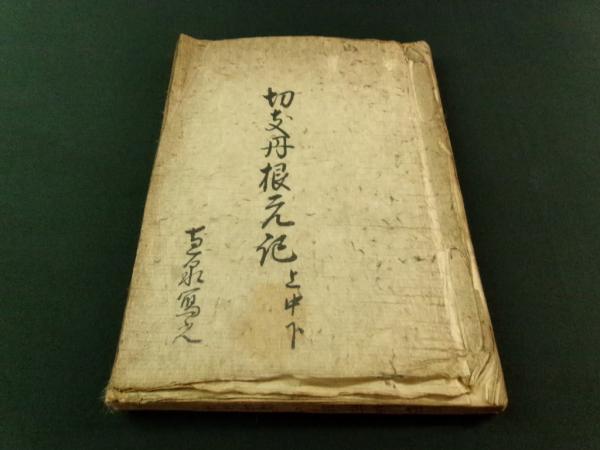 切支丹根元記 上中下
泉写之